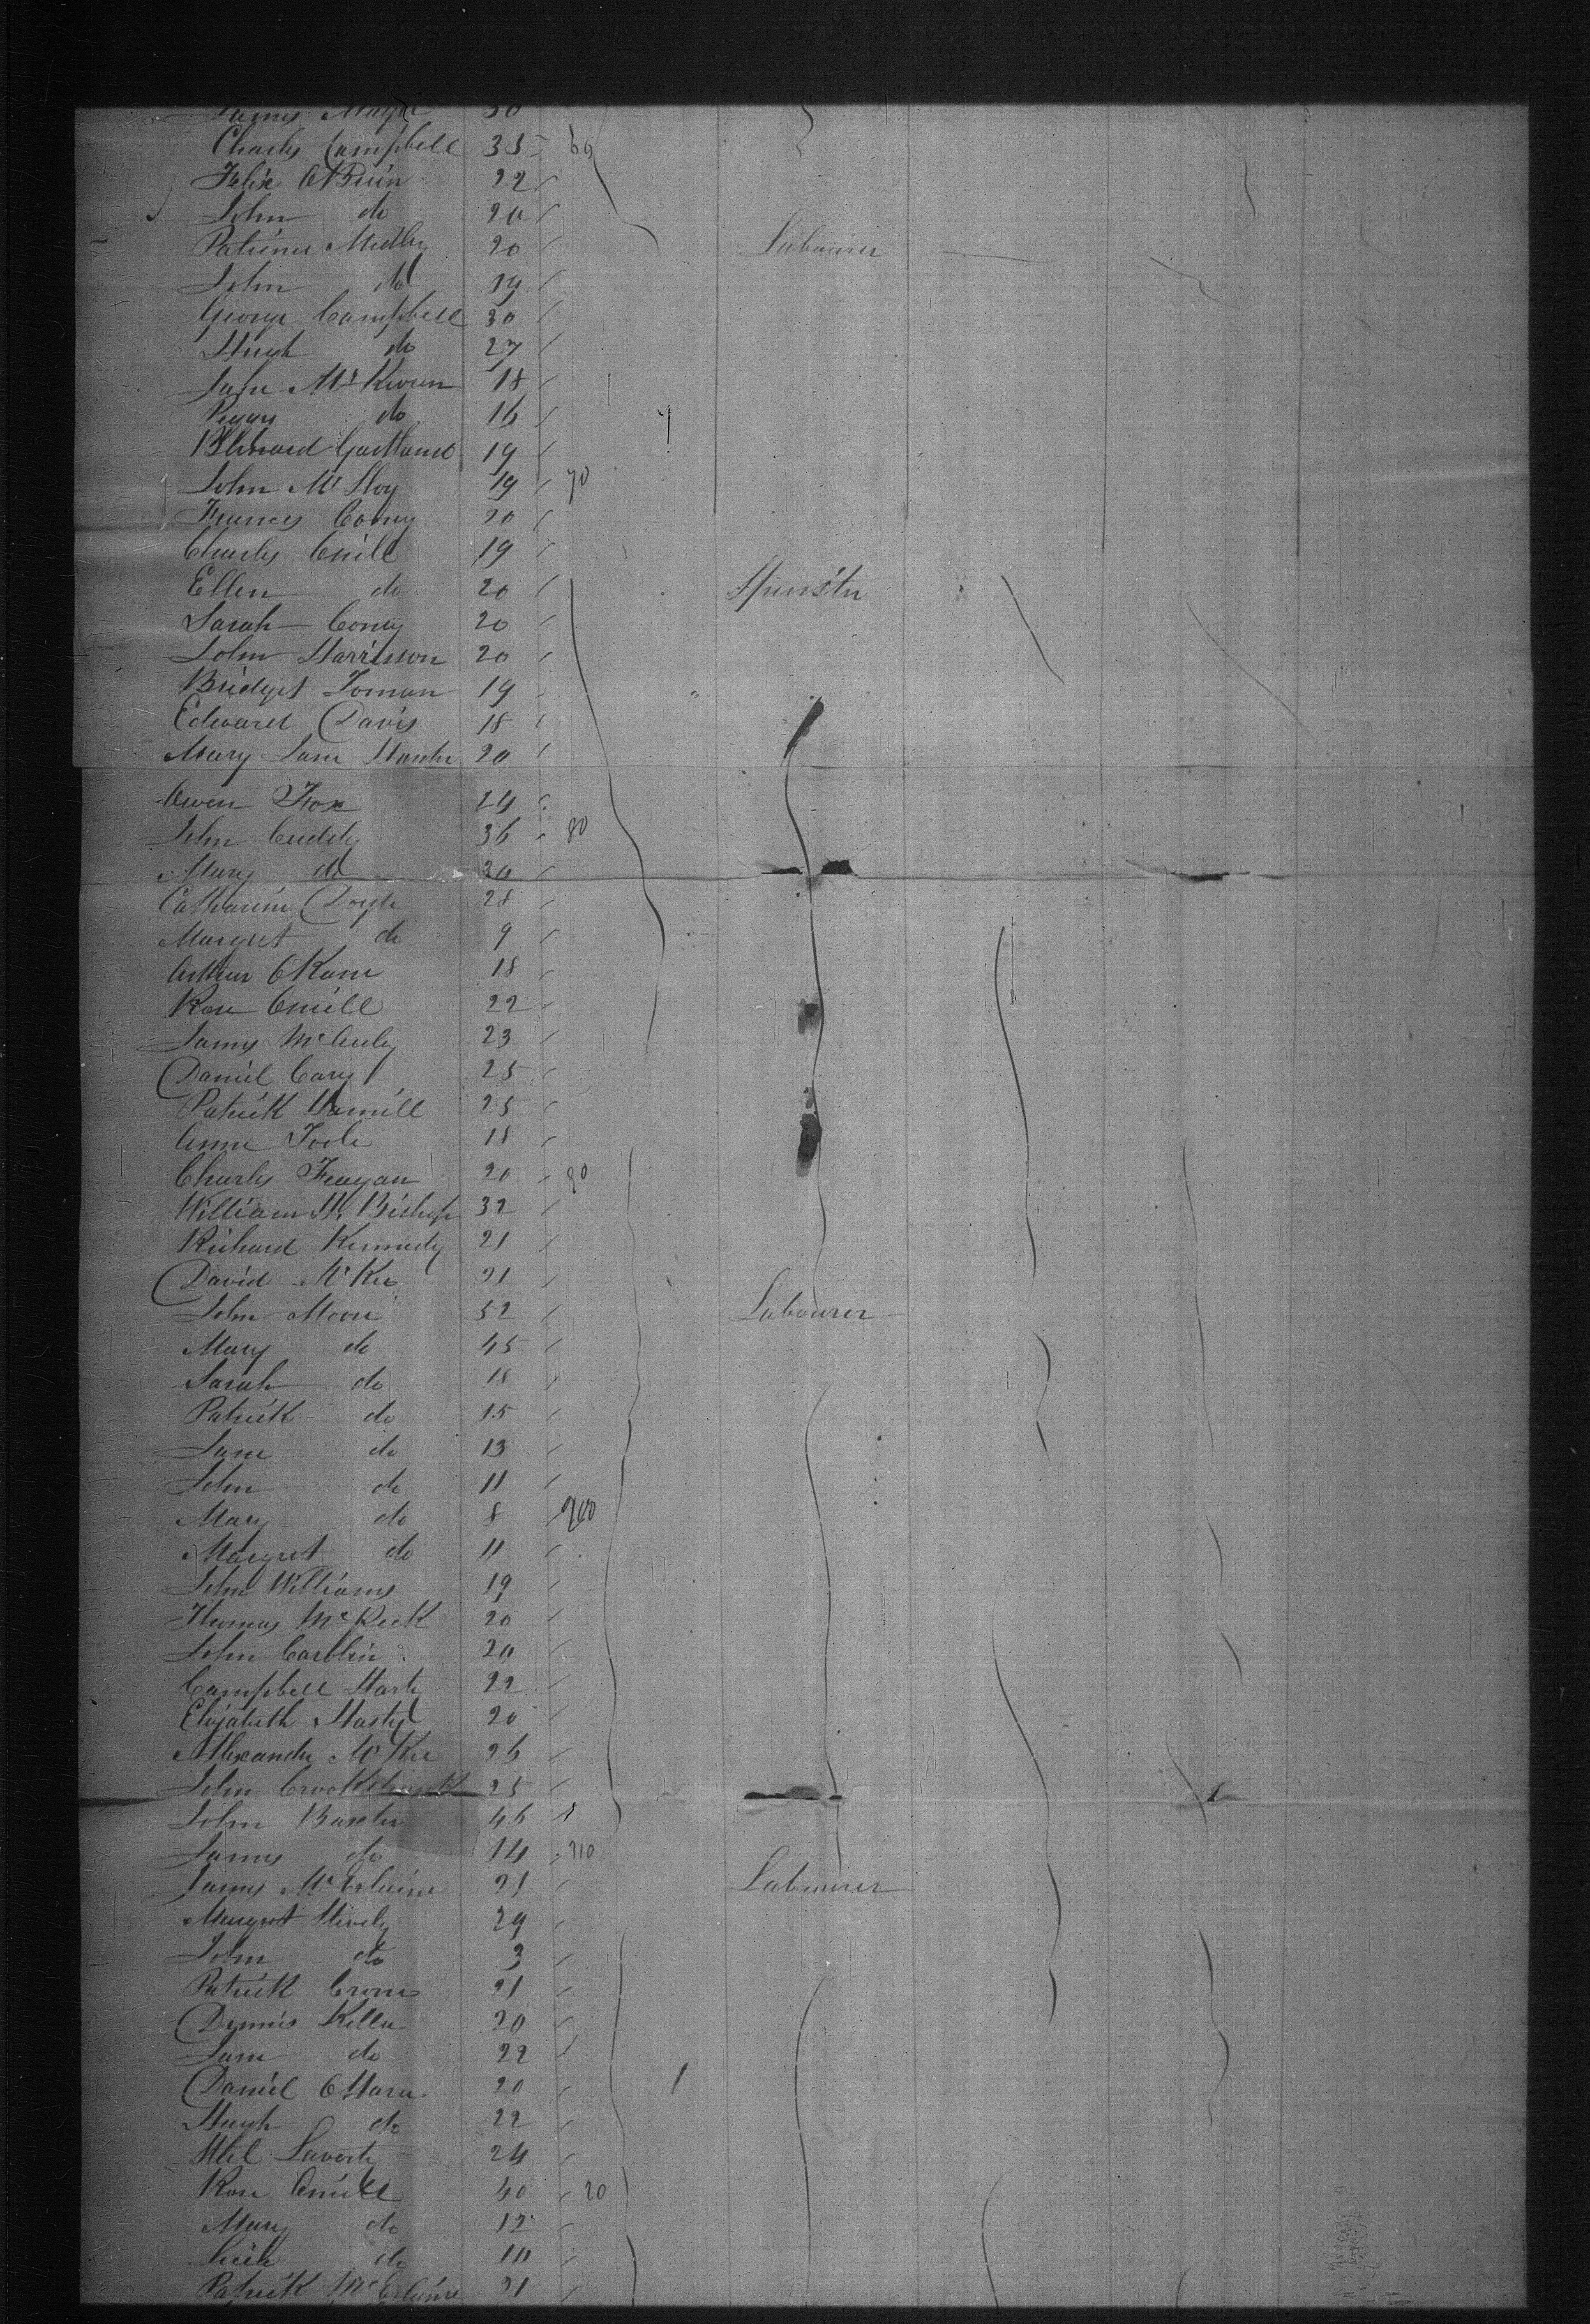 James 30
Charles Campbell 35 60
Felix OBrien 22
John do 20
Patience Medley 20 Labourer
John do 19
George Campbell 30
Hugh do 27
Jane McKeown 18
Peggy do 16
Bernard Gartland 19
John McIlroy 19 70
Frances Coney 20
Charles Oneill 19
Ellen do 20 Spinster
Sarah Coney 20
John Harrisson 20
Bridget Toman 19
Edward Davis 18
Mary Jane 20
Owen Fox 24
John Cuddy 36 80
Mary do 30
Catharine Doyle 28
Margret do 9
Arthur OKane 18
Rose Oneill 22
James McAuley 23
Daniel Cary 25
Patrick Hamill 25
Anne Toole 18
Charles Feagan 20 90
William H. Bishop 32
Richard Kennedy 21
David McKee 21
John Moore 52 Labourer
Mary do 45
Sarah do 18
Patrick do 15
Jane do 13
John do 11
Mary do 8 200
Margret do 11
John Williams 19
Thomas McPeek 20
John Carblin 20
Campbell Harty 22
Elizabeth Hasty 20
Alexander McKee 26
John Crookshank 25
John Baxter 46
James do 14 210
James McErlaine 21 Labourer
Margret Hively 29
John do 3
Patrick Crone 21
Dennis Kella 20
Jane do 22
Daniel OHara 20
Hugh do 22
Laverty 24
Rose Oneill 40 20
Mary do 12
do 10
Patrick McErlaine 21